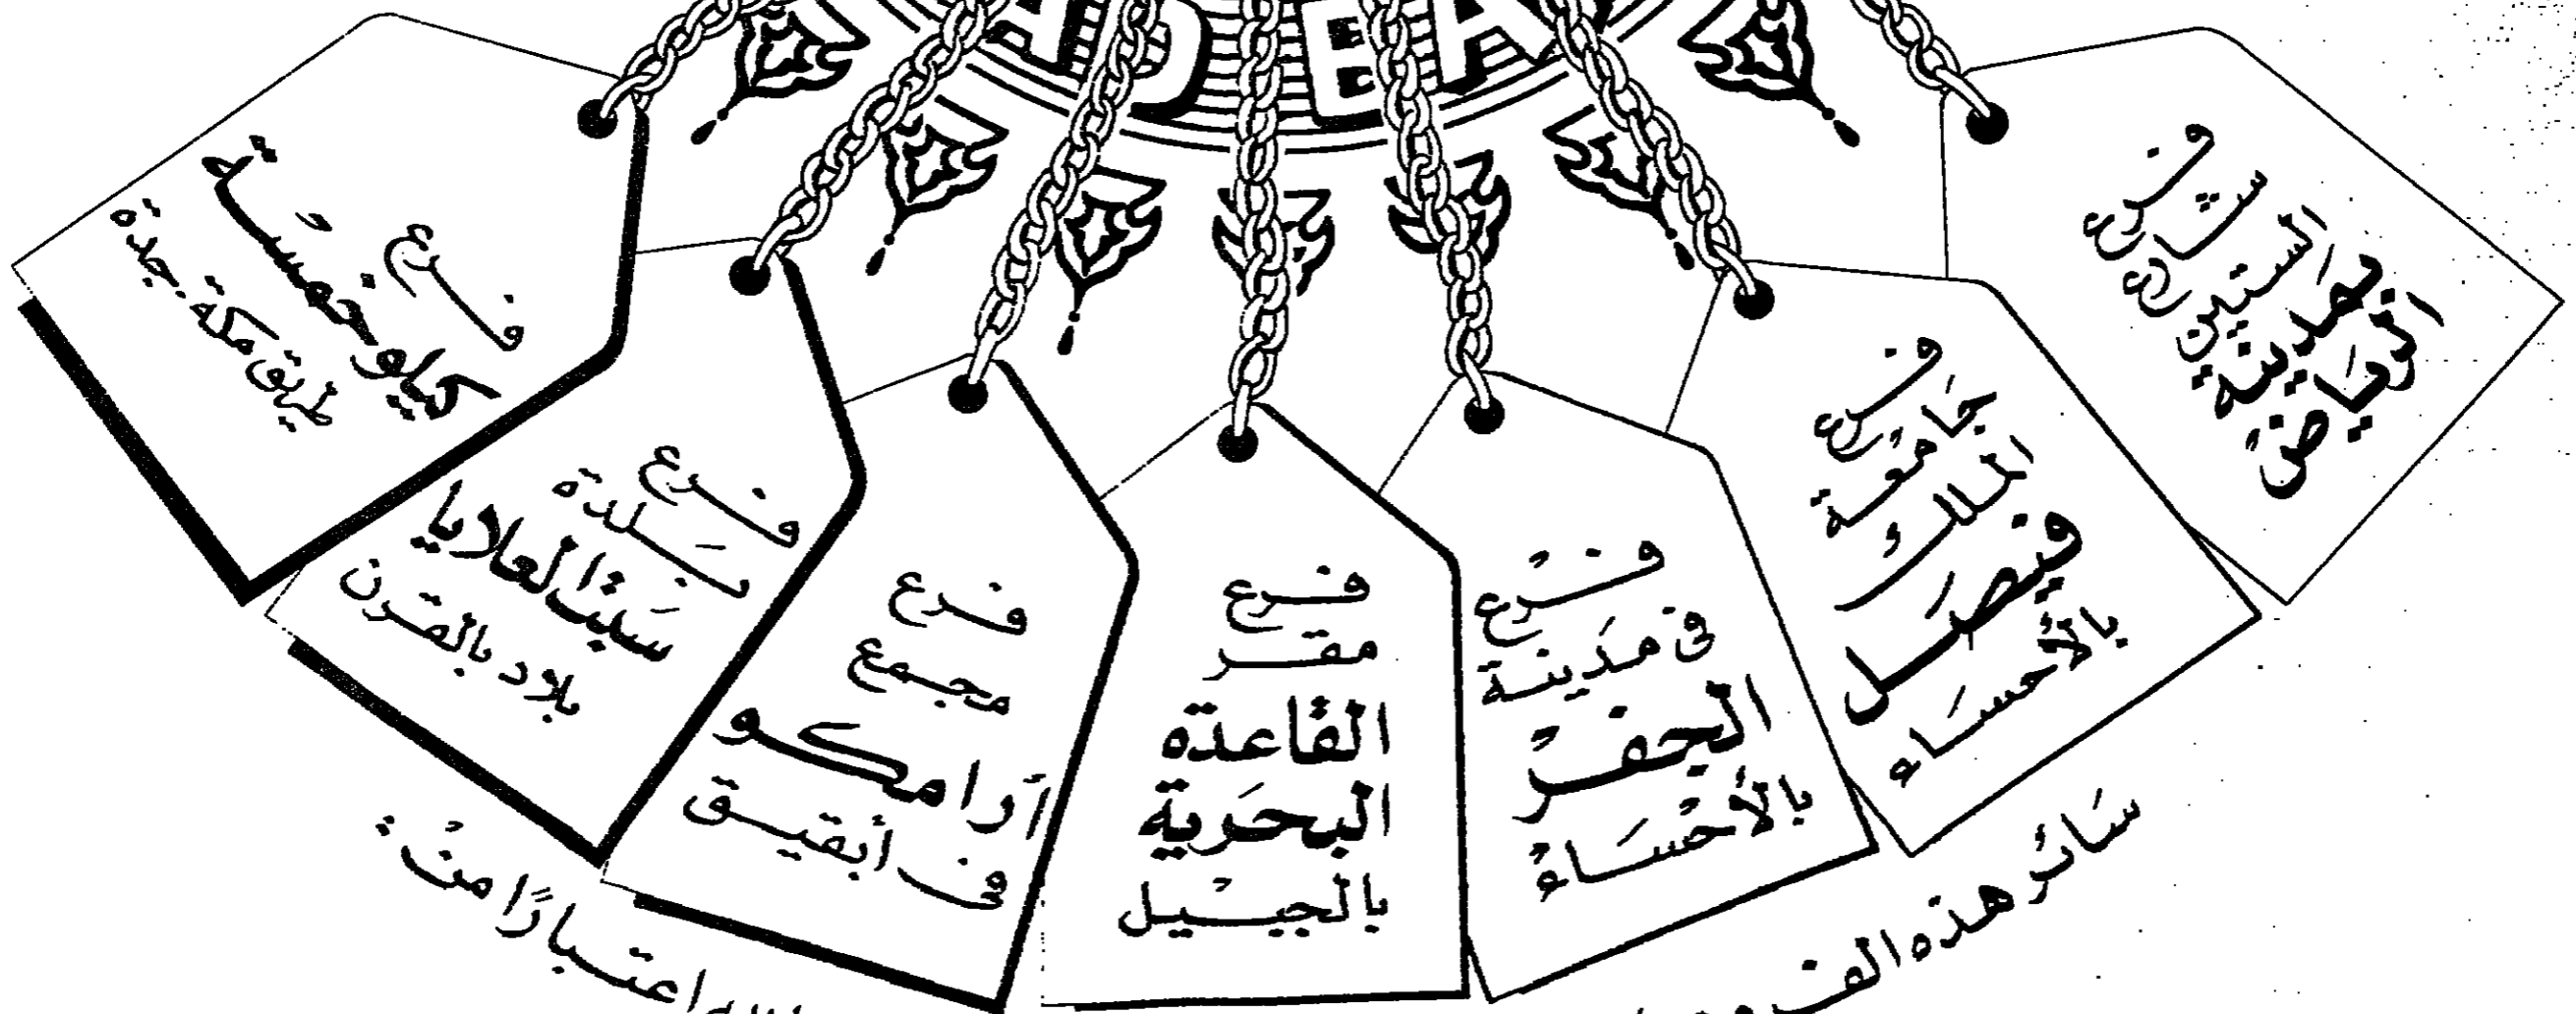 فرع
شارع
الستين
بمدينة
الرياض
فرع
جامعة
الملك
فيصل
بالأحساء
فرع
في مدينة
الجفر
بالأحساء
فرع
مقر
القاعدة
البحرية
بالجبيل
فرع
مجمع
أرامكو
في أبقيق
فرع
بلدة
سبت العلايا
بلاد بالقرن
فرع
كيلو خمسة
طريق مكة . جدة
سائر هذه
اعتبارًا من :